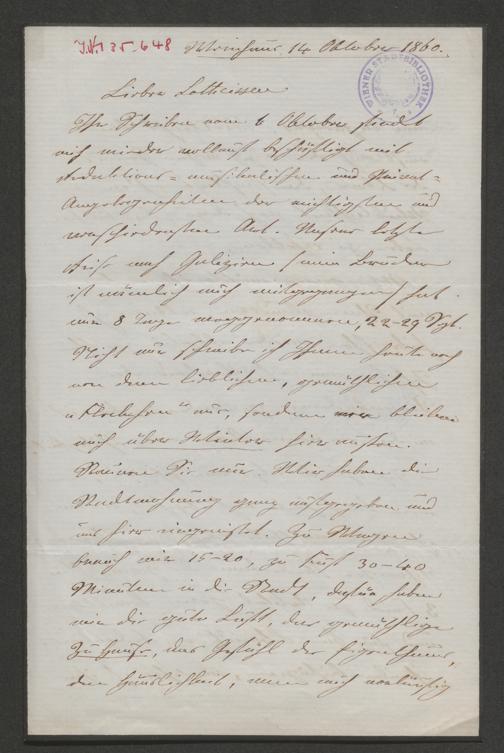 I.N. 135.648 Weinhaus, 14 Oktober 1860.
WIENER STADTBIBLIOTHEK
Lieber
Ihr Schreiben vom 6 Oktober findet
mich wieder vollauf beschäftigt mit
Redaktions- musikalischen und Privat-
Angelegenheiten der wichtigsten und
verschiedensten Art. Unsere letzte
Reise nach Galizien (mein Bruder
ist nämlich auch mitgegangen) hat
nur 8 Tage weggenommen, 22-29 Sept.
Nicht nur schreibe ich Ihnen heute noch
von dem lieblichen, gemüthlichen
nur, sondern wir bleiben
auch über Winter hier außen.
Staunen Sie nur. Wir haben die
Stadtwohnung ganz aufgegeben und
uns hier eingenistet. Zu Wagen
brauch wir 15-20, zu Fuß 30-40
Minuten in die Stadt, dafür haben
wir die gute Luft, das gemüthliche
Zuhause, das Gefühl des Eigenthums,
der Häuslichkeit, wenn auch vorläufig